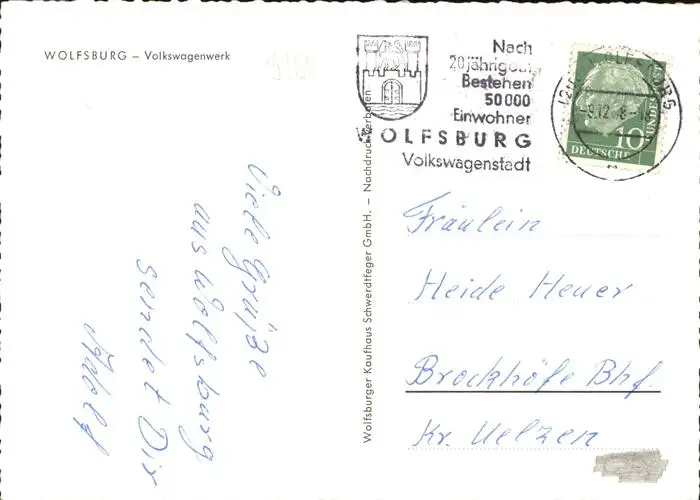 WOLFSBURG – Volkswagenwerk
Nach
20jährigem
Bestehen
50000
Einwohner
WOLFSBURG
Volkswagenstadt
10
DEUTSCHE
BUNDESPOST
Viele Grüße
aus Wolfsburg
sendet Dir
Adolf
Wolfsburger Kaufhaus Schwerdtfeger GmbH. — Nachdruck verboten
Fräulein
Heide Heuer
Brockhöfe Bhf.
Kr. Uelzen